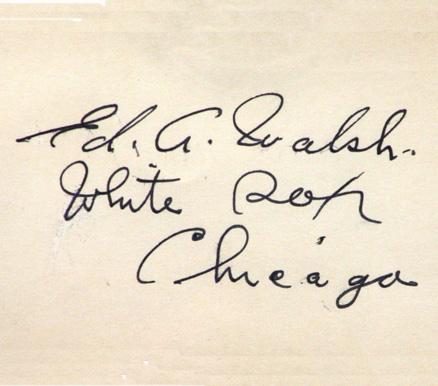 Ed. A. Walsh.
White Sox
Chicago